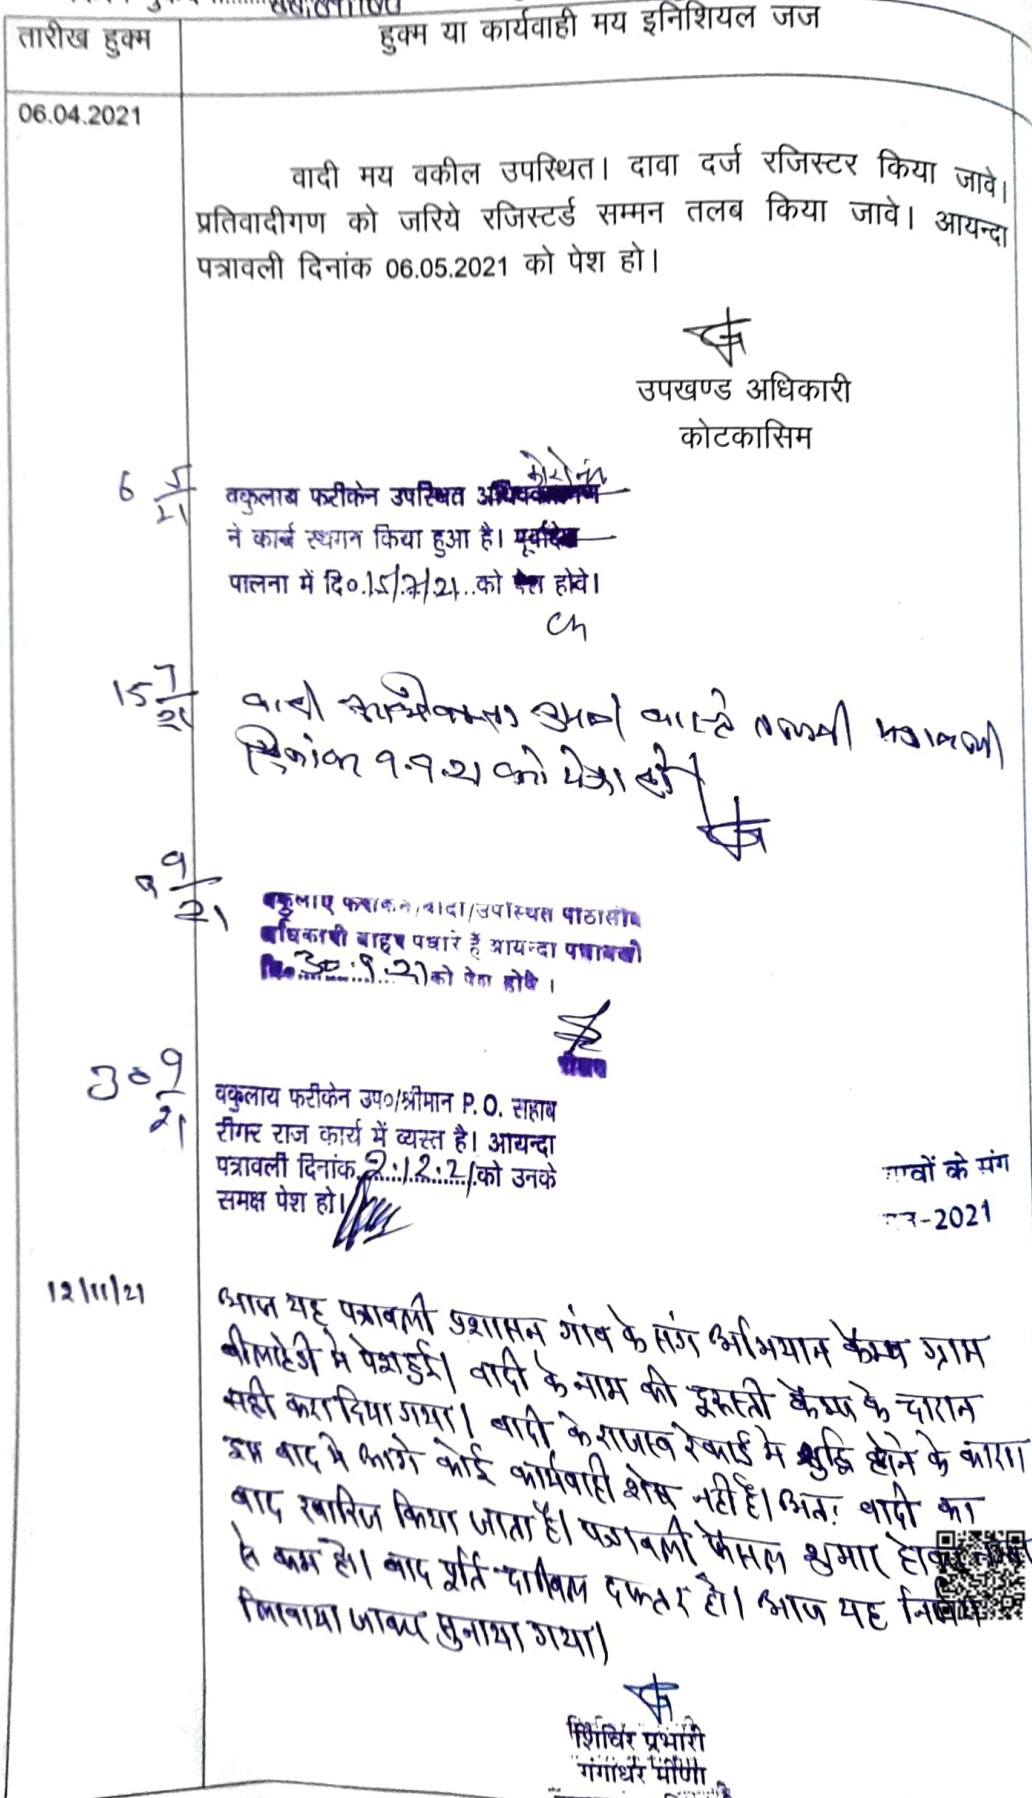 तारीख हुक्म
हुक्म या कार्यवाही मय इनिशियल जज
06.04.2021
वादी मय वकील उपस्थित। दावा दर्ज रजिस्टर किया जावे।
प्रतिवादीगण को जरिये रजिस्टर्ड सम्मन तलब किया जावे। आयन्दा
पत्रावली दिनांक 06.05.2021 को पेश हो।
उपखण्ड अधिकारी
कोटकासिम
6 5/21
वकुलाय फरीकेन उपस्थित
ने कार्य स्थगन किया हुआ है।
पालना में दि०.15/7/21..को पेश होवे।
15 7/21
वादी
दिनांक 9.9.21 को पेश हो।
9 9/21
वकुलाए फरीकेन/वादी/उपस्थित पीठासीन
अधिकारी बाहर पधारे हैं आयन्दा पत्रावली
दि०...30.9.21 को पेश होवे।
30 9/21
वकुलाय फरीकेन उप०/श्रीमान P.O. सहाब
दीगर राज कार्य में व्यस्त है। आयन्दा
पत्रावली दिनांक.2.12.21.को उनके
समक्ष पेश हो।
गावों के संग
-2021
12/11/21
आज यह पत्रावली प्रशासन गांव के संग अभियान कैम्प ग्राम
में पेश हुई। वादी के नाम की दुरुस्ती कैम्प के दौरान
सही करा दिया गया। वादी के राजस्व रेकार्ड में शुद्धि होने के कारण
इस वाद में आगे कोई कार्यवाही शेष नहीं है। अतः वादी का
वाद खारिज किया जाता है। पत्रावली फैसल शुमार होकर
से कम हो। बाद पूर्ति दाखिल दफ्तर हो। आज यह निर्णय
लिखाया जाकर सुनाया गया।
शिविर प्रभारी
गंगाधर मीणा